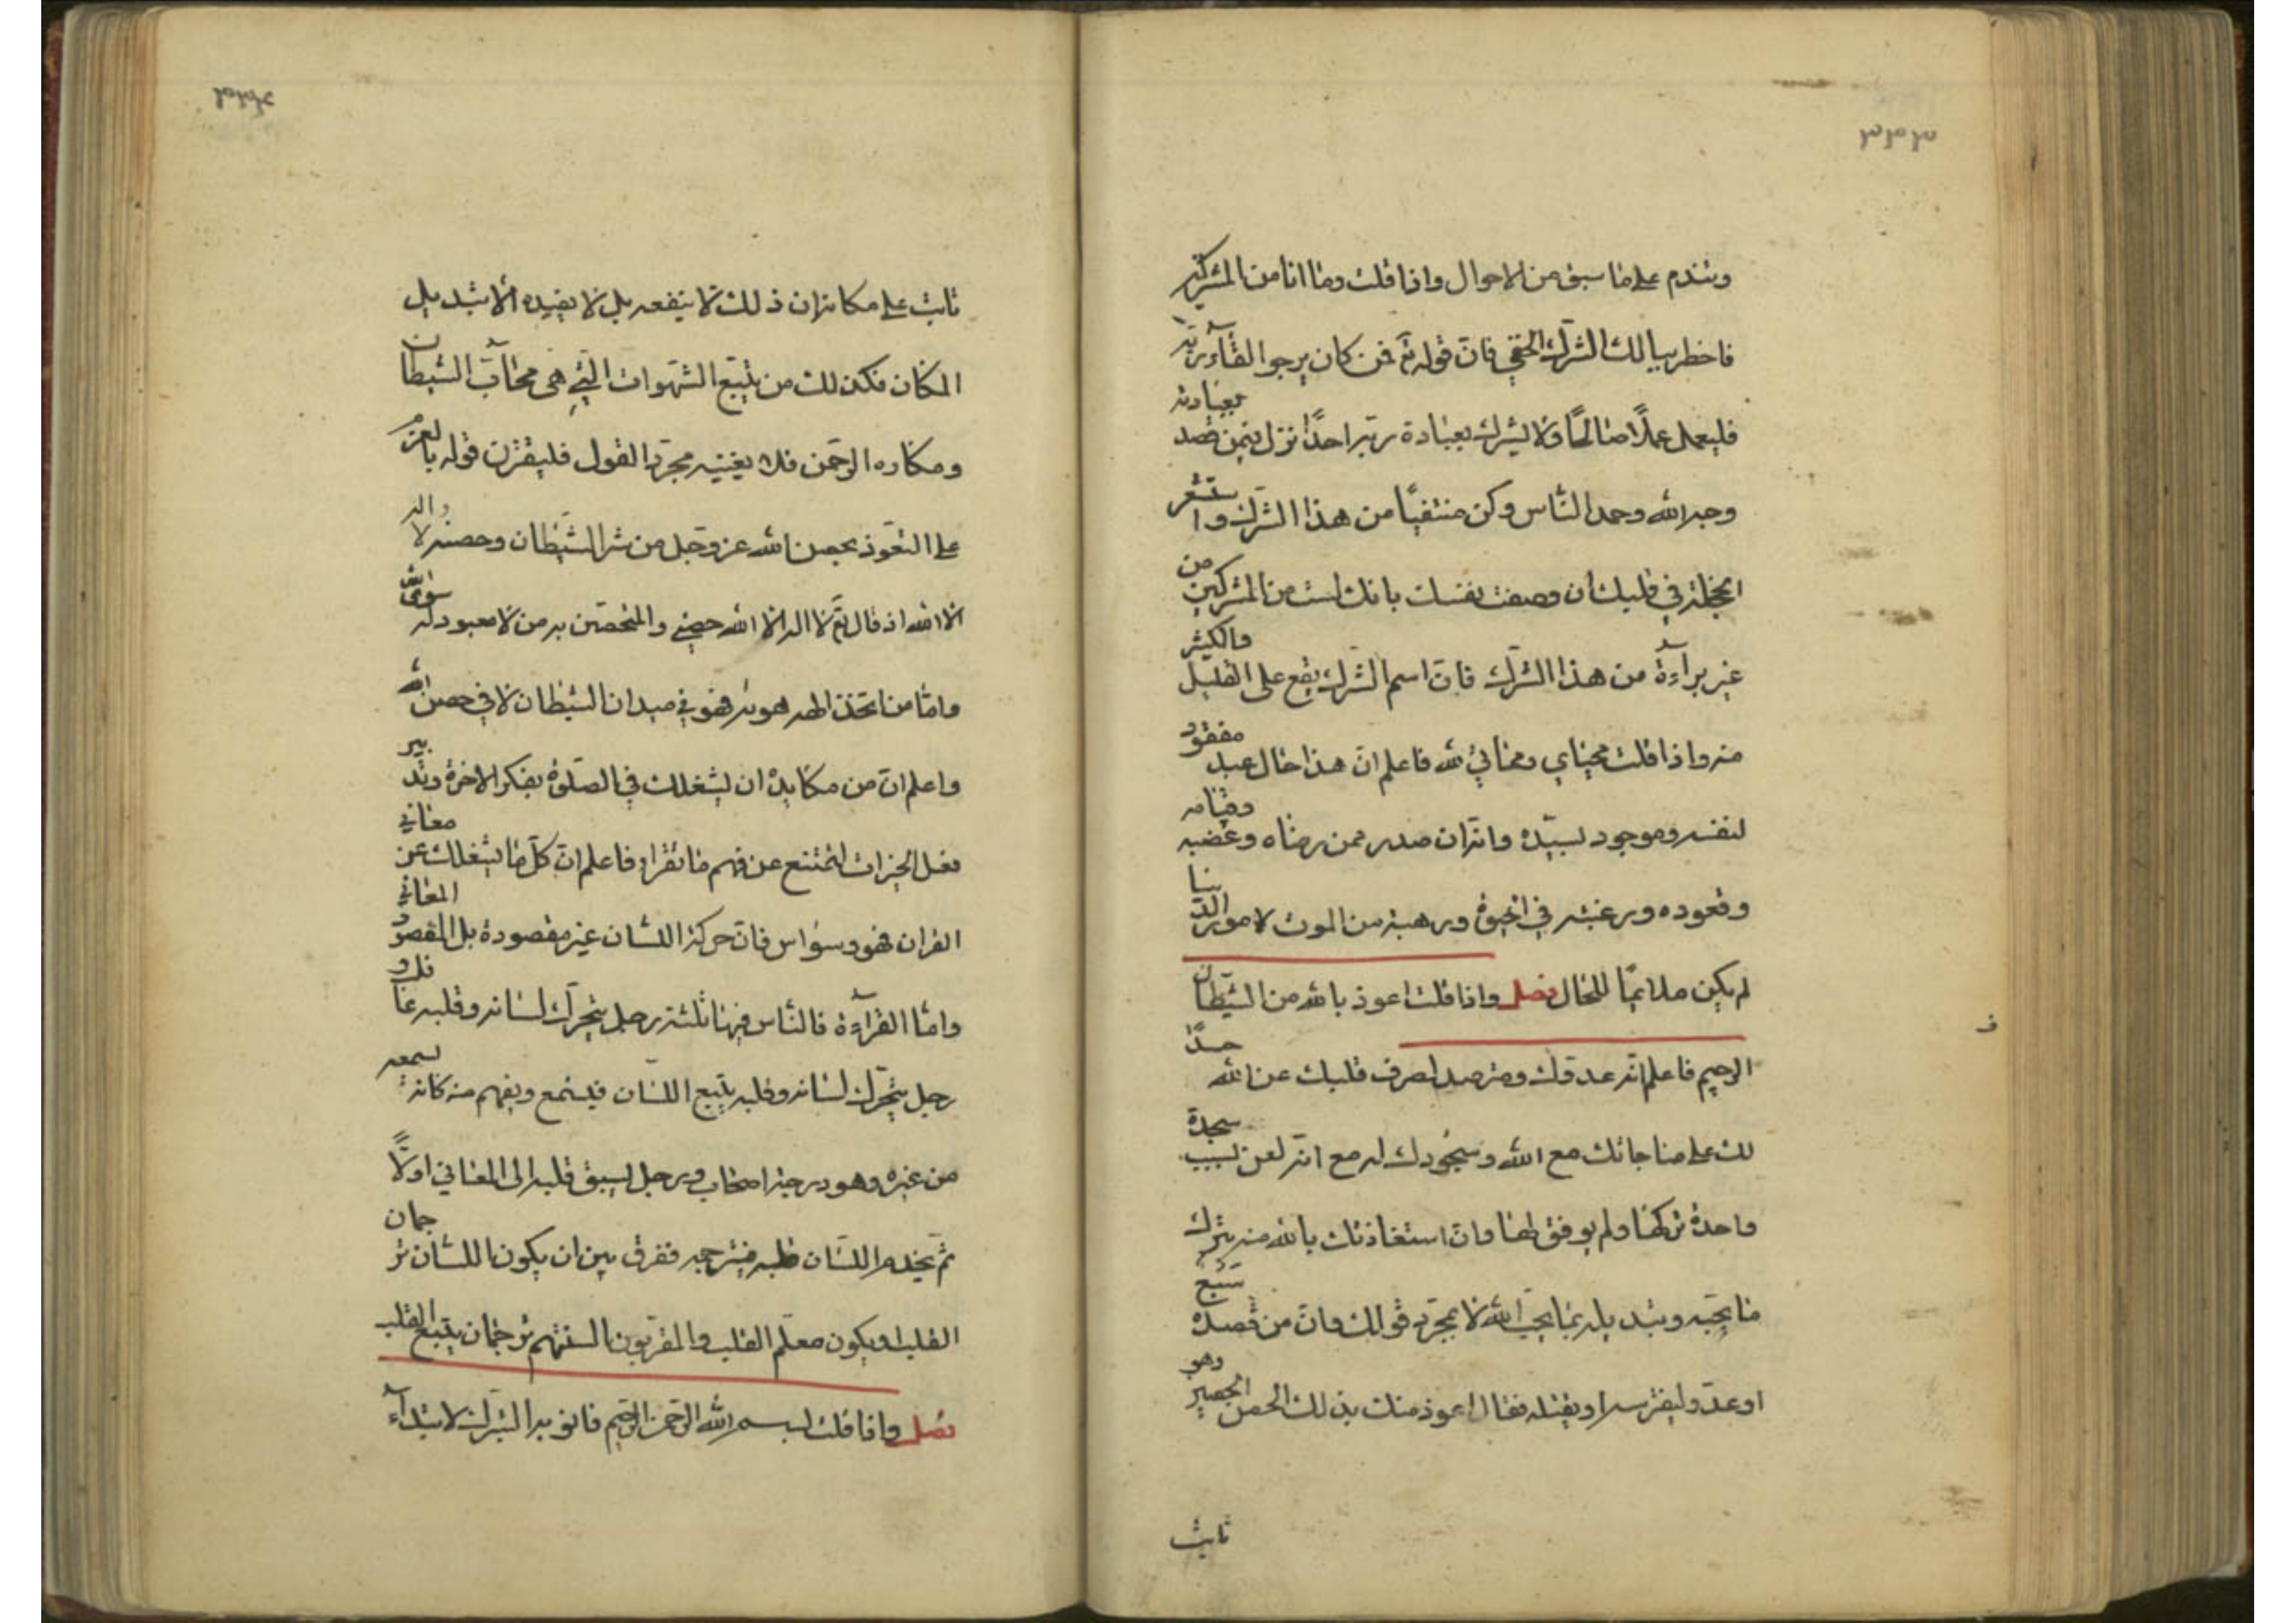 ٣٣٣
ويندم على ما سبق من الاحوال واذا قلت وما انا من المشركين
فاخطر ببالك الشرك الخفي فان قوله تع فمن كان يرجوا لقآء ربه
فليعمل عملًا صالحًا ولا يشرك بعبادة ربه احدًا نزل فيمن قصد بعبادته
وجه الله وحمد الناس وكن منتفيًا من هذا الشرك واستشعر
الخجلة في قلبك ان وصفت نفسك بانك لست من المشركين من
غير برآءة من هذا الشرك فان اسم الشرك يقع على القليل والكثير
منه واذا قلت محياي ومماتي لله فاعلم ان هذا حال عبد مفقود
لنفسه وموجود لسيده وانه ان صدر ممن رضاه وغضبه وقيامه
وقعوده ورغبته في الحيوة ورهبته من الموت لامور الدنيا
لم يكن ملائمًا للحال فصل واذا قلت اعوذ بالله من الشيطان
الرجيم فاعلم انه عدوك ومترصد لصرف قلبك عن الله حسدًا
لك على مناجاتك مع الله وسجودك له مع انه لعن بسبب سجدة
واحدة تركها ولم يوفق لها وان استعاذتك بالله منه بترك
ما يحبه وتبديله بما يحب الله لا بمجرد قولك وان من قصده سبع
او عدو ليفترسه او يقتله فقال اعوذ منك بذلك الحصن الحصين وهو
ثابت
ثابت على مكانه ان ذلك لا ينفعه بل لا يفيده الا تبديل
المكان فكذلك من يتبع الشهوات التي هي محاب الشيطان
ومكاره الرحمن فلا يغنيه مجرد القول فليقترن قوله بالعزم
على التعوذ بحصن الله عز وجل من شر الشيطان وحصنه لا اله
الا الله اذ قال تع لا اله الا الله حصني والمتحصن به من لا معبود له سوى الله
واما من اتخذ الهه هويه فهو في ميدان الشيطان لا في حصن الله
واعلم ان من مكايده ان يشغلك في الصلوة بفكر الاخرة وتدبير
فعل الخيرات لتمتنع عن فهم ما تقراه فاعلم ان كل ما يشغلك عن معاني
القران فهو وسواس فان حركة اللسان غير مقصودة بل المقصود المعاني
واما القرآءة فالناس فيها ثلثة رجل يتحرك لسانه وقلبه غافل و
رجل يتحرك لسانه وقلبه يتبع اللسان فيسمع ويفهم منه كانه يسمعه
من غيره وهو درجة اصحاب ورجل يسبق قلبه الى المعاني اولًا
ثم يخدم اللسان قلبه فيترجمه ففرق بين ان يكون اللسان ترجمان
القلب او يكون معلم القلب والمقربون السنتهم ترجمان يتبع القلب
فصل واذا قلت بسم الله الرحمن الرحيم فانو به التبرك لابتدآء